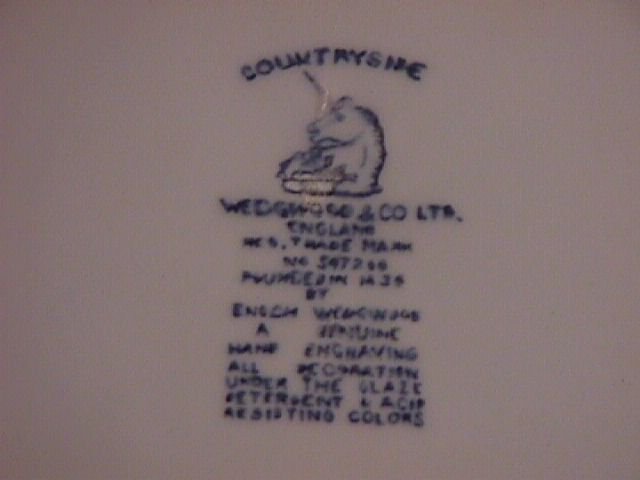 COUNTRYSIDE
WEDGWOOD & CO LTD.
ENGLAND
REG. TRADE MARK
NO 547266
FOUNDED IN 1835
BY
ENOCH WEDGWOOD
A GENUINE
HAND ENGRAVING
ALL DECORATION
UNDER THE GLAZE
DETERGENT & ACID
RESISTING COLORS